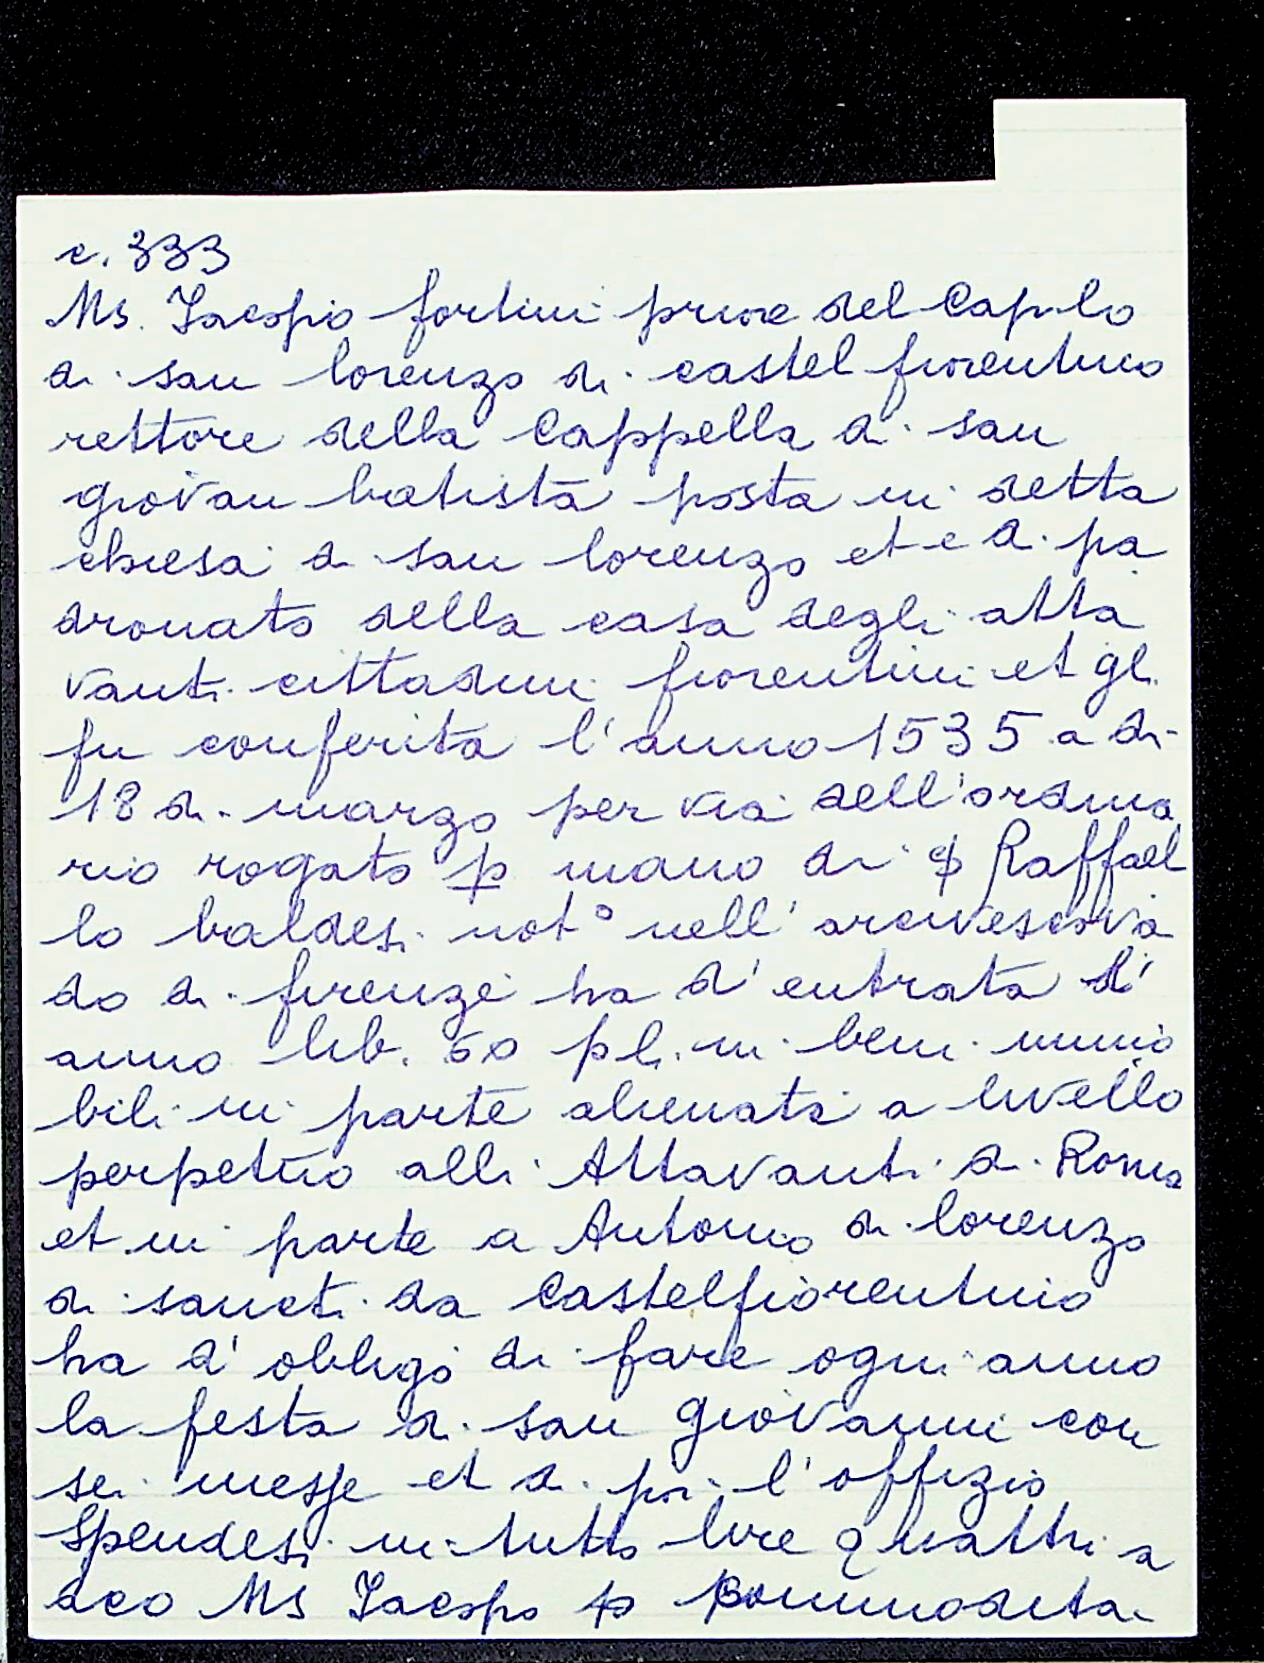 c. 333
Ms. Jacopo fortini priore del Cap.lo
di san lorenzo di castel fiorentino
rettore della Cappella di san
giovan batista posta in detta
chiesa di san lorenzo et e di pa
dronato della casa degli atta
vanti cittadini fiorentini et gli
fu conferita l'anno 1535 a di
18 di marzo per via dell'ordina
rio rogato p mano di Raffael
lo baldesi not° nell'arcivescova
do di firenze ha d'entrata l'
anno lib. 60 pli. in beni immo
bili in parte alienati a livello
perpetuo alli Attavanti di Roma
et in parte a Antonio di lorenzo
di sancti da Castelfiorentino
ha d'obligo di fare ogni anno
la festa di san giovanni con
sei messe et di poi l'offizio
Spendesi in tutto lire quattri a
dco Ms Jacopo p